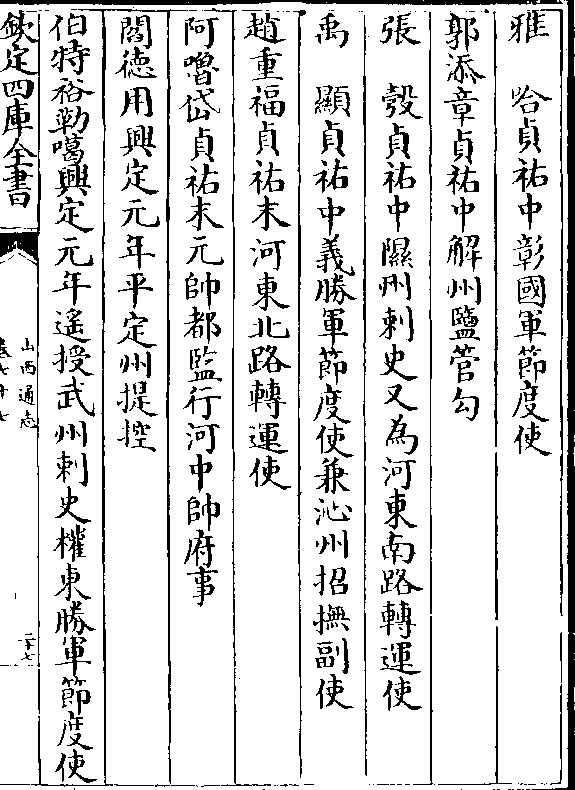 雅　哈貞祐中彰國軍節度使
郭添章貞祐中解州鹽管勾
張　彀貞祐中隰州刺史又為河東南路轉運使
禹　顯貞祐中義勝軍節度使兼沁州招撫副使
趙重福貞祐末河東北路轉運使
阿嚕岱貞祐末元帥都監行河中帥府事
閻德用興定元年平定州提控
伯特裕勒噶興定元年遙授武州刺史權東勝軍節度使
欽定四庫全書
山西通志
卷七十七
二十七